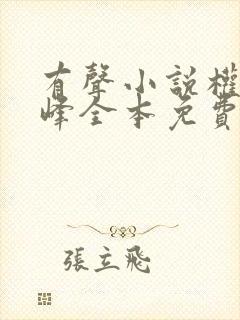 有聲小說權
峰全本免費
張立飛